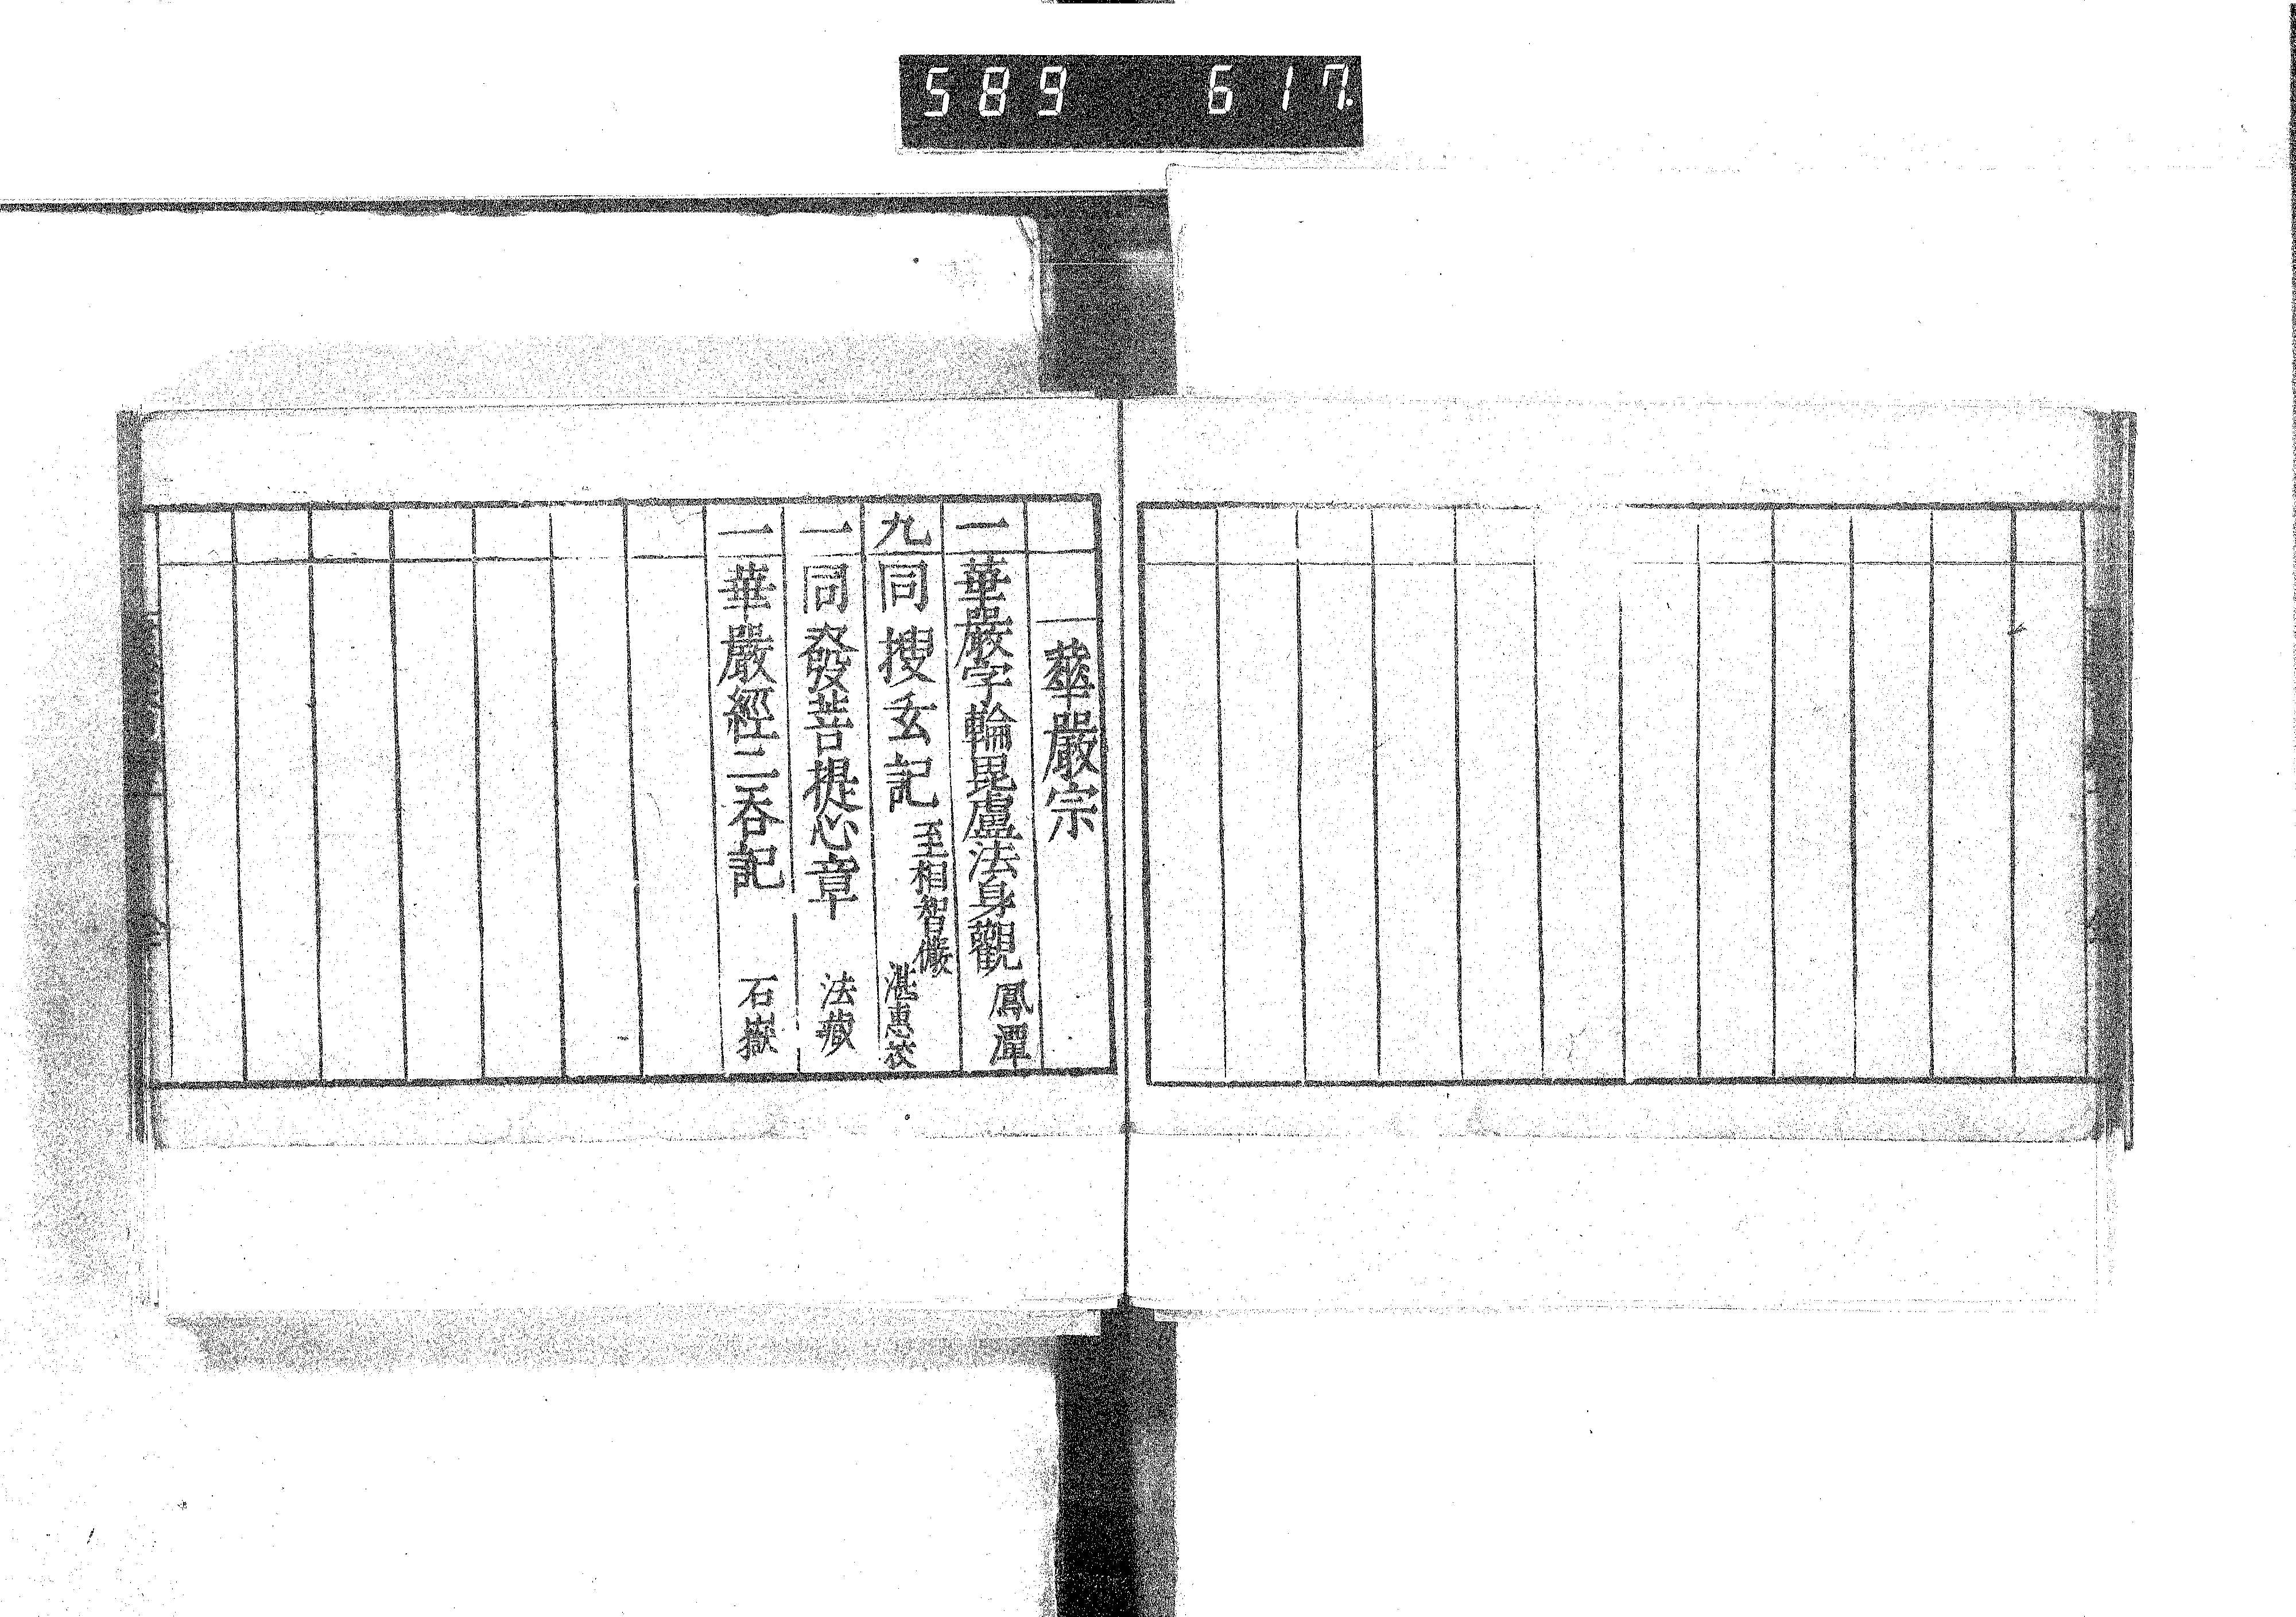 589 617.
華嚴宗
一 華嚴字輪毘盧法身觀 鳳潭
九 同搜玄記 至相智儼 湛惠校
一 同發菩提心章 法藏
一 華嚴經三吞記 石嶽